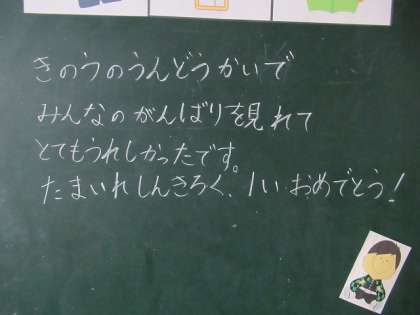 きのうのうんどうかいで
みんなのがんばりを見れて
とてもうれしかったです。
たまいれしんきろく、1い おめでとう!